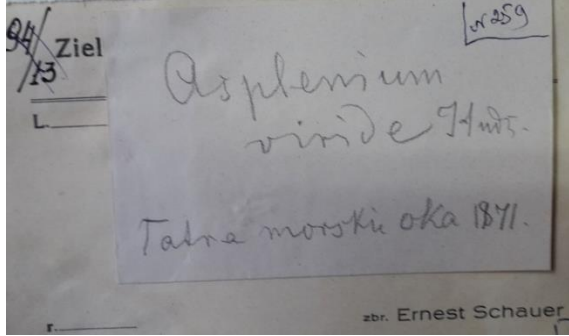 94/13 Ziel
N 259
Asplenium
viride Huds.
L.
Tatra morskie oka 1871.
zbr. Ernest Schauer
r.